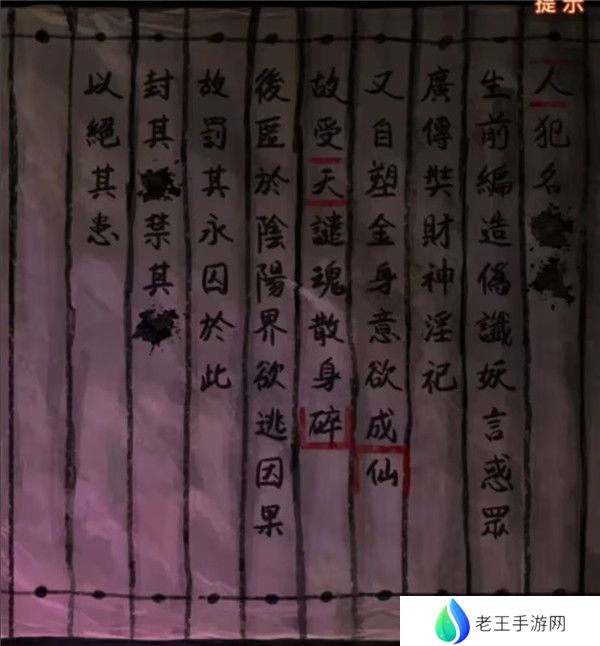 提示
人犯名
生前編造偽讖妖言惑眾
廣傳奘財神淫祀
又自塑金身意欲成仙
故受天譴魂散身碎
後匿於陰陽界欲逃因果
故罰其永囚於此
封其禁其
以絕其患
老王手游网